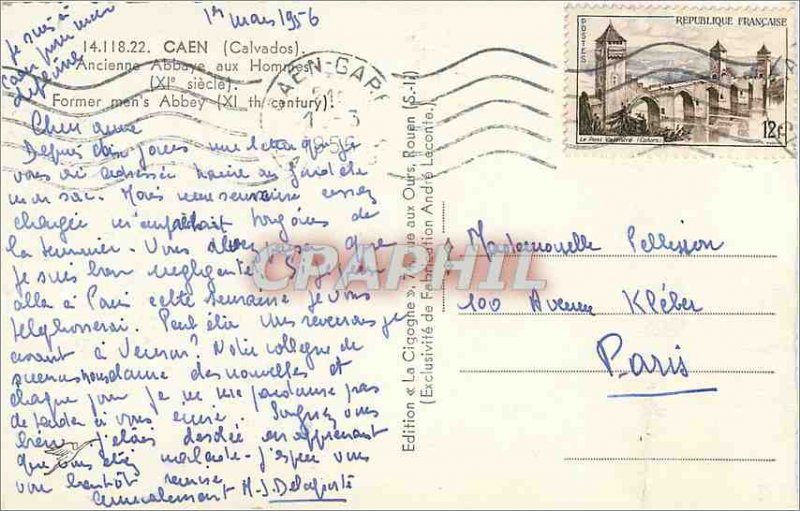 1er mars 1956
Je suis à
Caen pour
14.118.22. CAEN (Calvados).
Ancienne Abbaye aux Hommes
(XIe siècle).
Former men's Abbey (XI th century).
CAEN-GARE
1 - 3
1956
REPUBLIQUE FRANÇAISE
POSTES
Le Pont Valentré (Cahors)
12F
Depuis jours une lettre que je
vous ai adressée au fond de
mon sac. Mais une semaine assez
chargée m'empêchait toujours de
la terminer. Vous que
je suis bien négligente! Si je
alla à Paris cette semaine je vous
téléphonerai. Peut être vous reverrai je
avant à ? Notre collègue de
donne des nouvelles et
chaque jour je ne me pardonne pas
de tarder à vous écrire. Soignez vous
bien, j'étais désolée en apprenant
que vous étiez malade - j'espère vous
voir bientôt remise
Amicalement M-J. Delaporte
Edition « La Cigogne », rue aux Ours, Rouen (S.-I.)
(Exclusivité de Fabrication André Leconte.)
CPARAPHIL
Mademoiselle Pellisson
100 Avenue Kléber
Paris